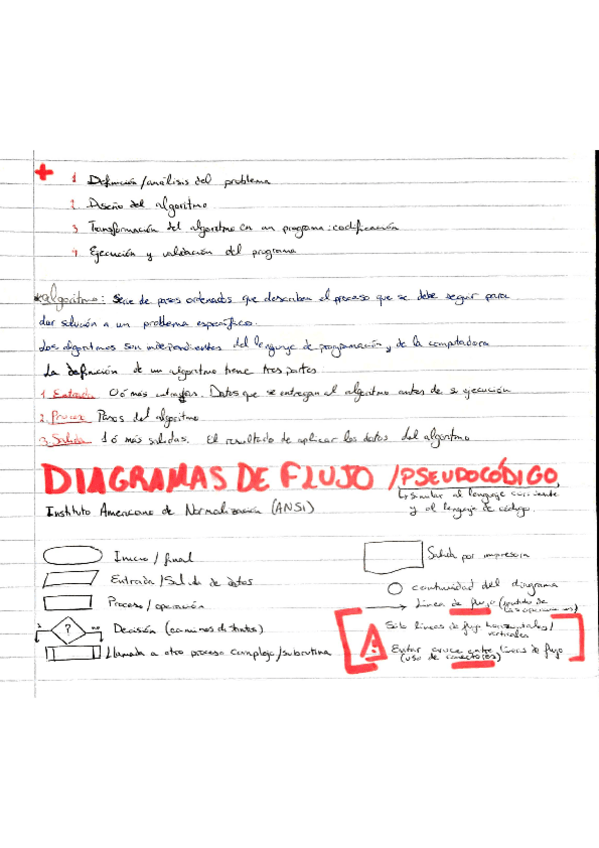 1 Definición/análisis del problema
2 Diseño del algoritmo
3 Transformación del algoritmo en un programa: codificación
4 Ejecución y validación del programa
*algoritmo: Serie de pasos ordenados que describen el proceso que se debe seguir para
dar solución a un problema específico.
Los algoritmos son independientes del lenguaje de programación, y de la computadora
La definición de un algoritmo tiene tres partes
1. Entrada 0 ó más entradas. Datos que se entregan al algoritmo antes de su ejecución
2. Proceso Pasos del algoritmo
3. Salida 1 ó más salidas. El resultado de aplicar los datos del algoritmo
DIAGRAMAS DE FLUJO / PSEUDOCÓDIGO
Similar al lenguaje corriente
y al lenguaje de código.
Instituto Americano de Normalización (ANSI)
Inicio / final
Entrada / Salida de datos
Proceso / operación
? no
Decisión (caminos distintos)
Llamada a otro proceso complejo/subrutina
Salida por impresora
continuidad del diagrama
Línea de flujo (sentido de
las operaciones)
Sólo líneas de flujo horizontales/
verticales
Evitar cruce entre líneas de flujo
(uso de conectores)